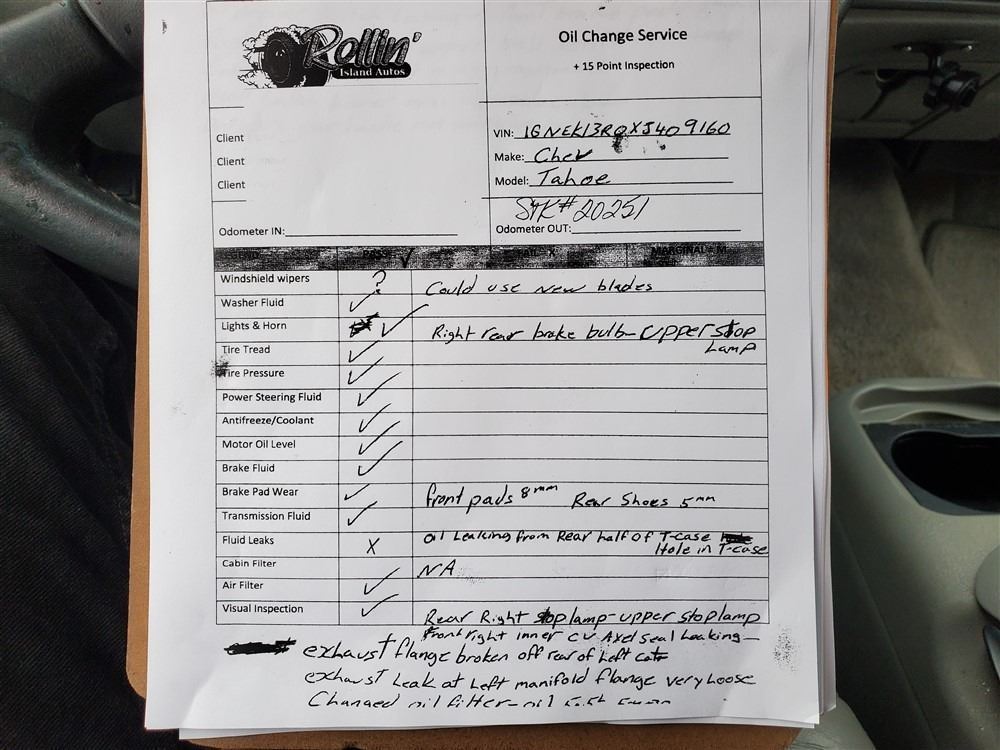 Rollin'
Island Autos
Oil Change Service
+ 15 Point Inspection
Client
Client
Client
VIN: 1GNEK13R0XJ409160
Make: Chev
Model: Tahoe
STK# 20251
Odometer IN:
Odometer OUT:
Windshield wipers ? Could use new blades
Washer Fluid ✓
Lights & Horn ✓ Right rear brake bulb - Upper stop
Lamp
Tire Tread ✓
Tire Pressure ✓
Power Steering Fluid ✓
Antifreeze/Coolant ✓
Motor Oil Level ✓
Brake Fluid ✓
Brake Pad Wear ✓ front pads 8mm Rear Shoes 5mm
Transmission Fluid ✓
Fluid Leaks X Oil Leaking from Rear half of T-case
Hole in T-case
Cabin Filter NA
Air Filter ✓
Visual Inspection ✓ Rear Right stoplamp - upper stoplamp
Front right inner CV Axel seal Leaking
exhaust flange broken off rear of Left cat
exhaust Leak at Left manifold flange very Loose
Changed oil filter - oil